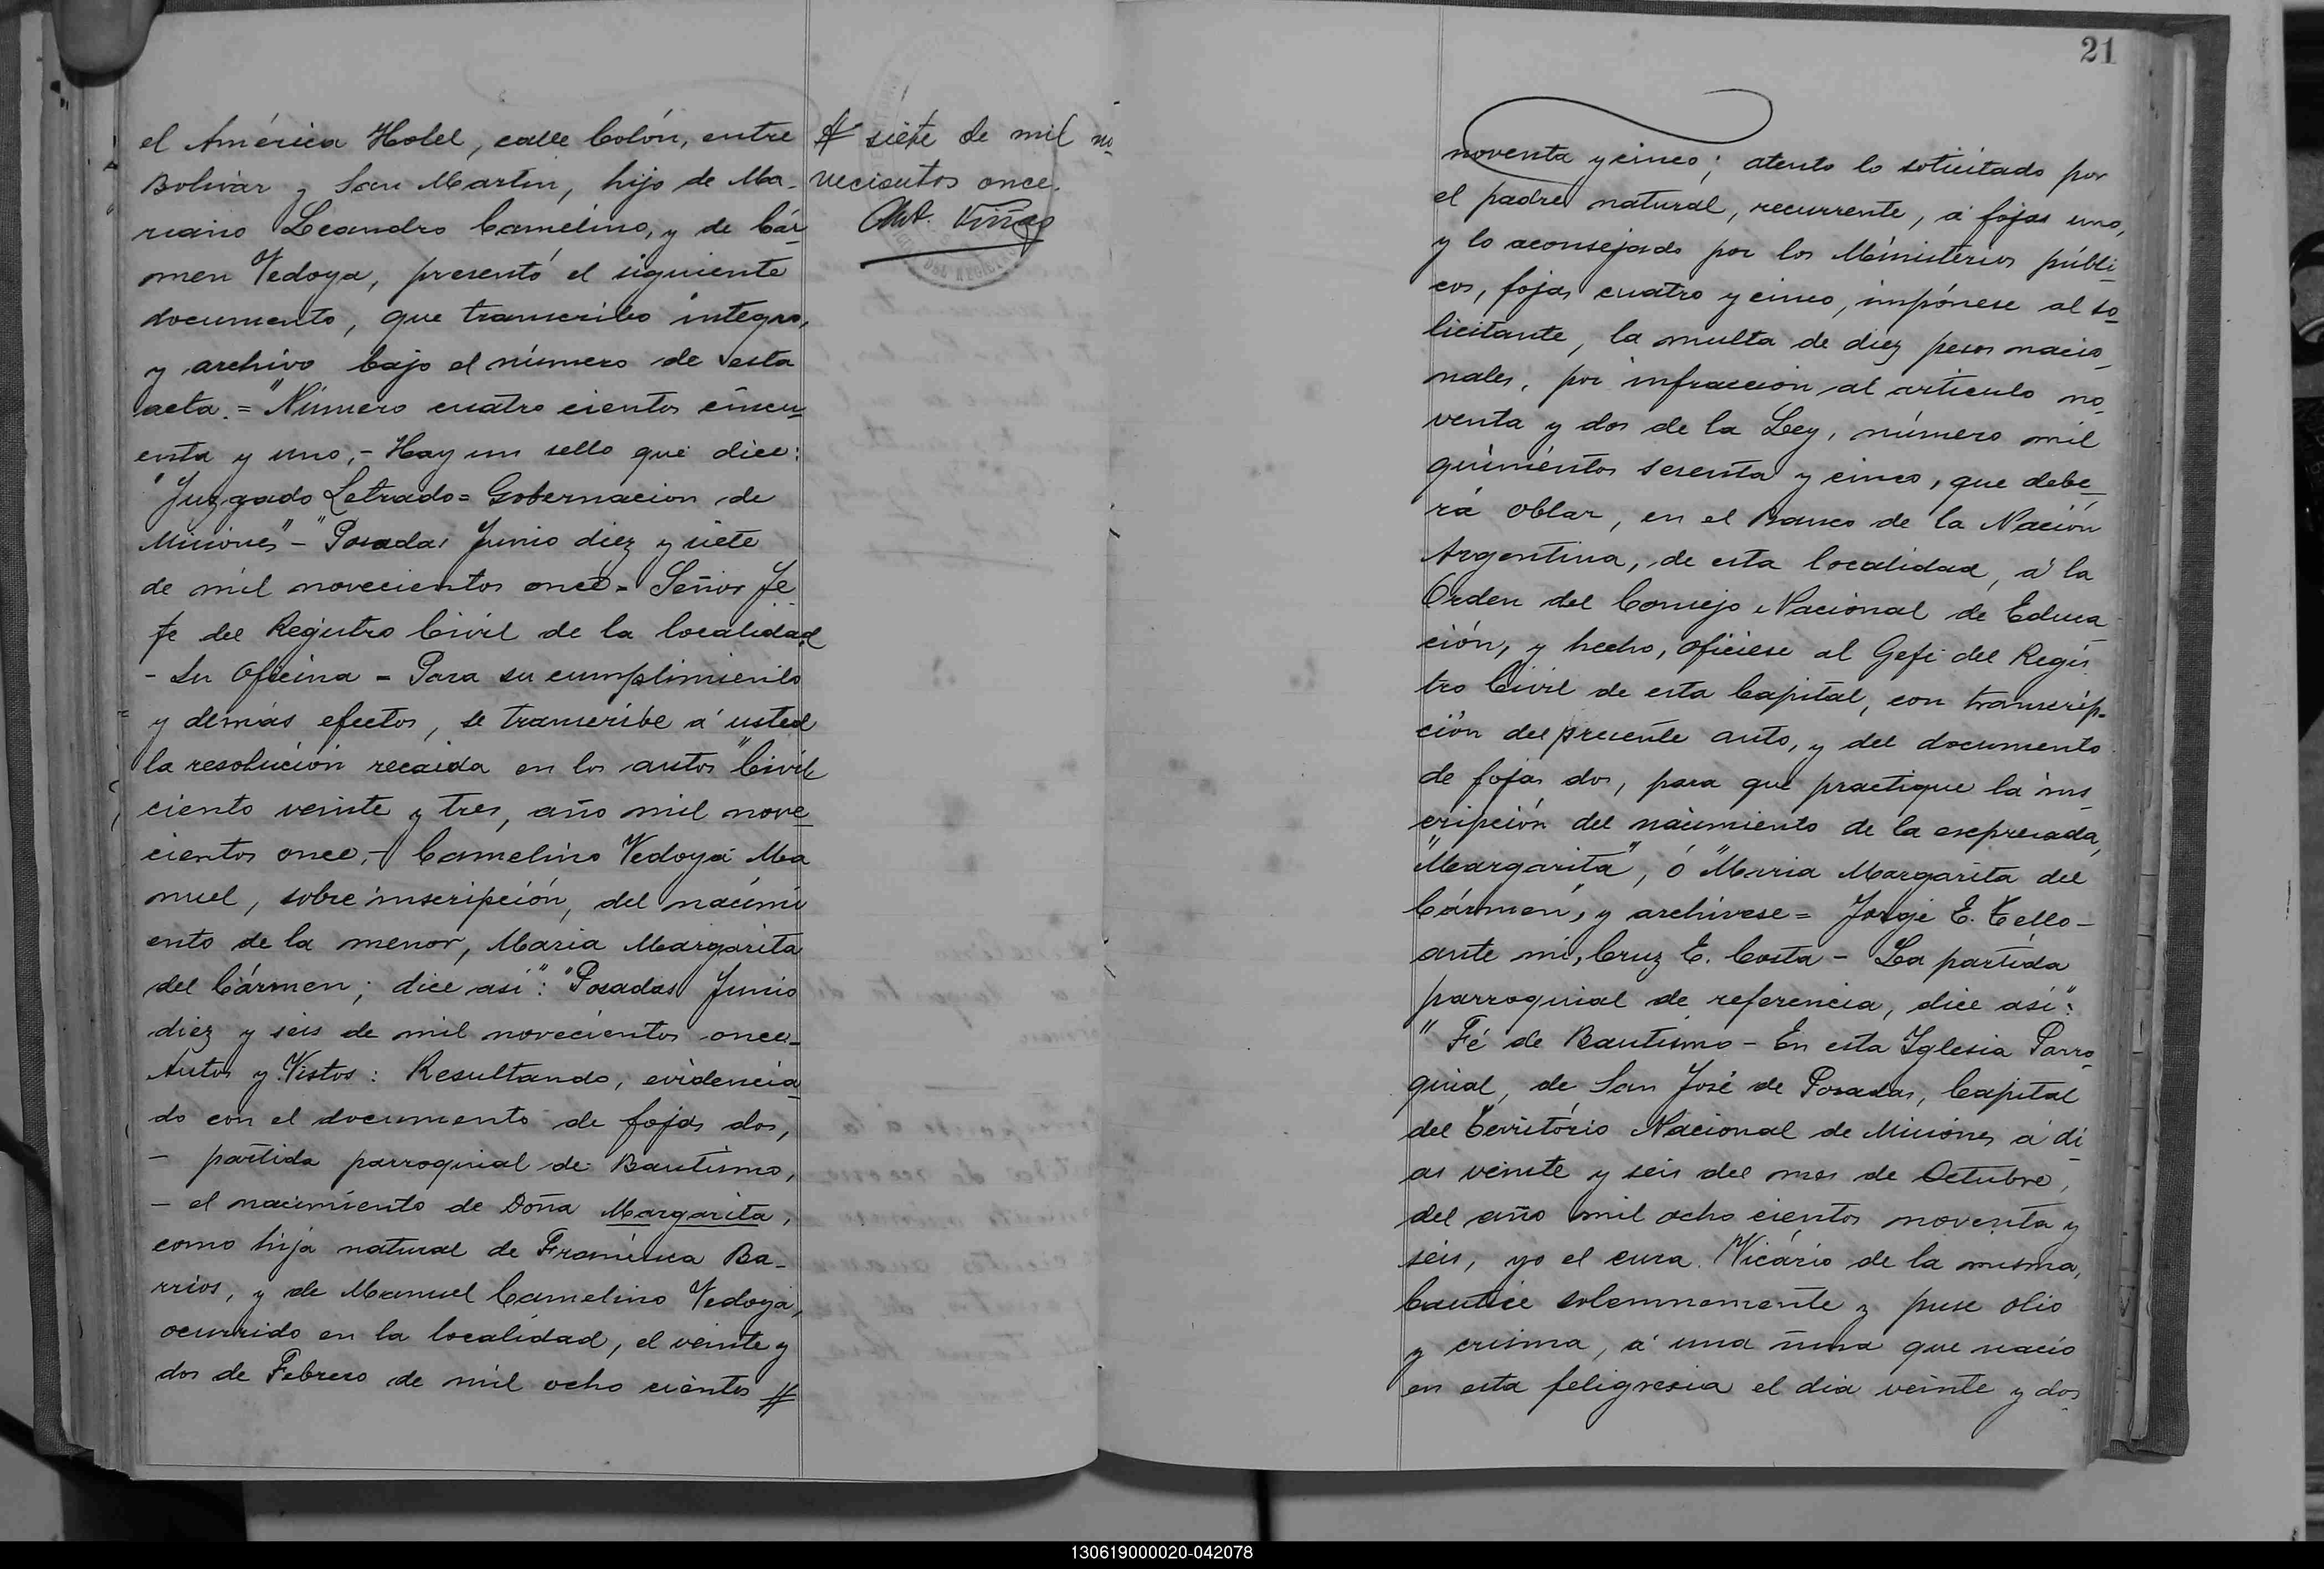 el América Hotel, calle Colón, entre
Bolívar y San Martín, hijo de Ma-
riano Leandro Camelino, y de Cár-
men Vedoya, presentó el siguiente
documento, que transcribo integro,
y archivo bajo el número de esta
acta. = "Número cuatro cientos cincu-
enta y uno, - Hay un sello que dice:
"Juzgado Letrado = Gobernacion de
Misiones" - "Posadas Junio diez y siete
de mil novecientos once - Señor Je-
fe del Registro Civil de la localidad
- Su Oficina - Para su cumplimiento
y demás efectos, se transcribe á usted
la resolución recaida en los autos "Civil
ciento veinte y tres, año mil nove-
cientos once, - Camelino Vedoya Ma
nuel, sobre inscripción, del nacimi
ento de la menor, María Margarita
del Cármen; dice asi": "Posadas Junio
diez y seis de mil novecientos once -
Autos y Vistos: Resultando, evidencia-
do con el documento de fojas dos,
- partida parroquial de Bautismo,
- el nacimiento de Doña Margarita,
como hija natural de Francisca Ba-
rrios, y de Manuel Camelino Vedoya,
ocurrido en la localidad, el veinte y
dos de Febrero de mil ocho cientos #
# siete de mil no-
vecientos once.
Ant. Viñas
21
noventa y cinco; atento lo solicitado por
el padre natural, recurrente, á fojas uno,
y lo aconsejado por los Ministerios públi-
cos, fojas cuatro y cinco, impónese al so-
licitante, la multa de diez pesos nacio-
nales, por infraccion al articulo no-
venta y dos de la Ley, número mil
quinientos sesenta y cinco, que debe-
rá oblar, en el Banco de la Nación
Argentina, de esta localidad, á la
Orden del Consejo Nacional de Educa-
ción, y hecho, ofíciese al Gefe del Regis
tro Civil de esta Capital, con transcrip-
ción del presente auto, y del documento
de fojas dos, para que practique la ins-
cripción del nacimiento de la espresada,
"Margarita", ó "Maria Margarita del
Cármen", y archívese = Jorge E. Tello -
ante mi, Cruz E. Costa - La partida
parroquial de referencia, dice así":
"Fé de Bautismo - En esta Iglesia Parro-
quial, de San José de Posadas, Capital
del Território Nacional de Misiones á di-
as veinte y seis del mes de Octubre,
del año mil ocho cientos noventa y
seis, yo el cura Vicário de la misma,
bauticé solemnemente y puse olio
y crisma, á una niña que nació
en esta feligresia el dia veinte y dos
130619000020-042078